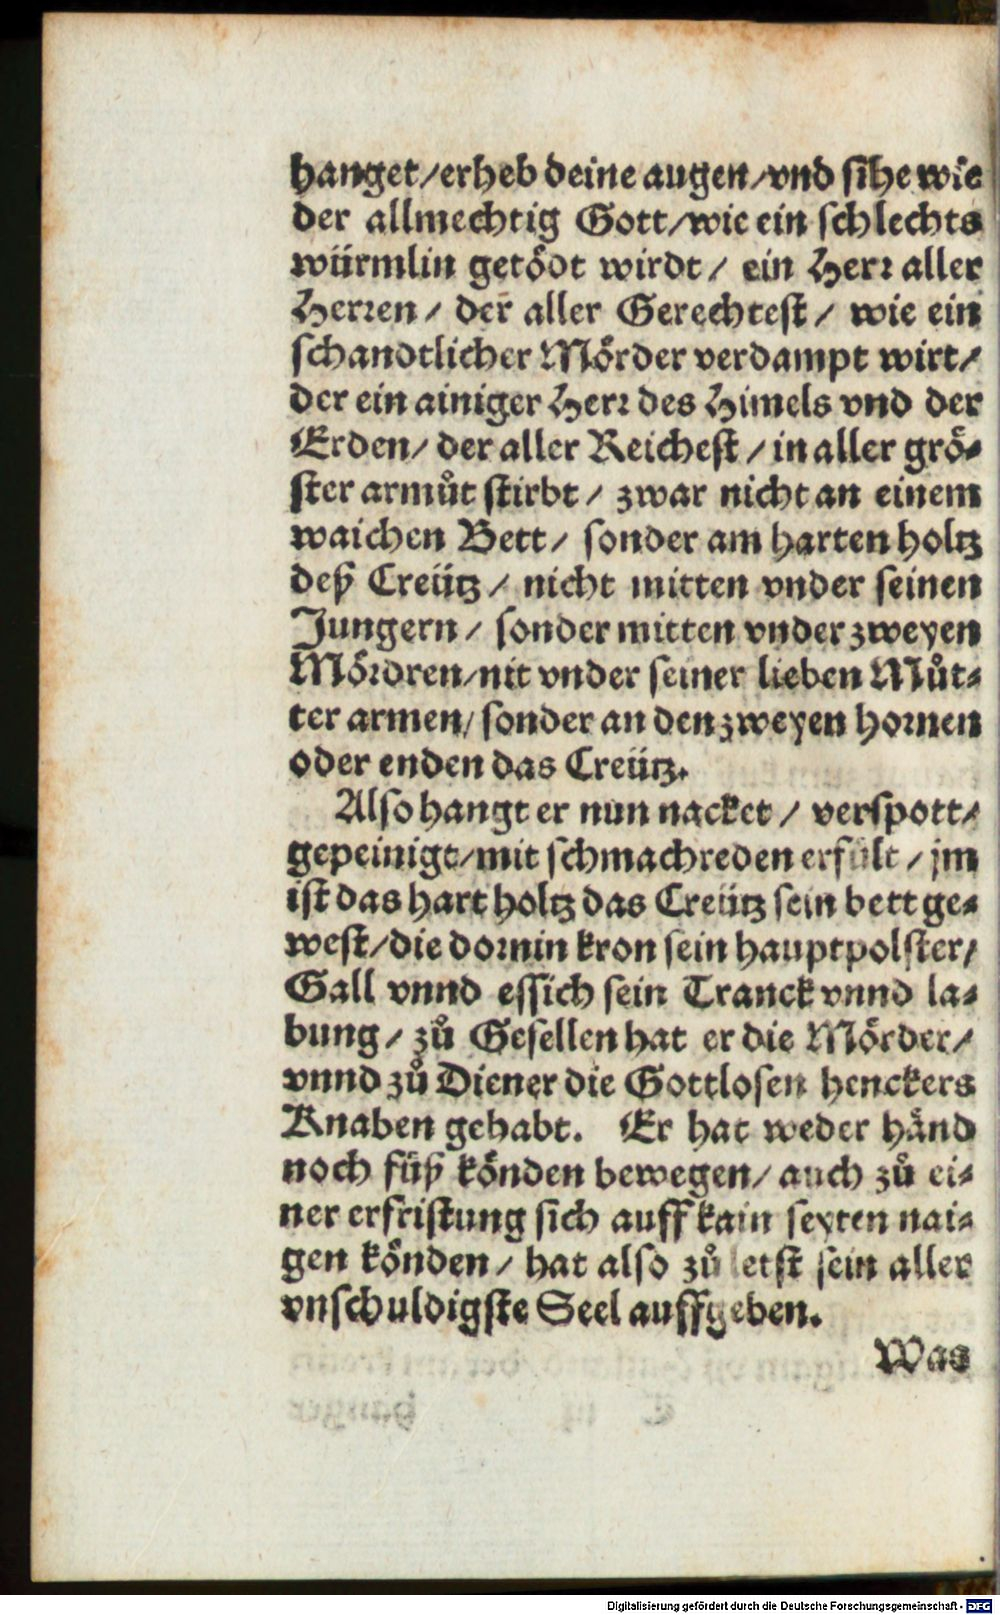 hanget/erheb deine augen/vnd sihe wie
der allmechtig Gott/wie ein schlechts
würmlin getödt wirdt/ ein Herr aller
Herren/ der aller Gerechtest/ wie ein
schandtlicher Mörder verdampt wirt/
der ein ainiger Herr des Himels vnd der
Erden/ der aller Reichest/ in aller grö-
ster armůt stirbt/ zwar nicht an einem
waichen Bett/ sonder am harten holtz
deß Creütz/ nicht mitten vnder seinen
Jungern/ sonder mitten vnder zweyen
Mördren/nit vnder seiner lieben Můt-
ter armen/ sonder an den zweyen hornen
oder enden das Creütz.
Also hangt er nun nacket/ verspott/
gepeinigt/mit schmachreden erfült/ jm
ist das hart holtz das Creütz sein bett ge-
west/die dornin kron sein hauptpolster/
Gall vnnd essich sein Tranck vnnd la-
bung/ zů Gesellen hat er die Mörder/
vnnd zů Diener die Gottlosen henckers
Knaben gehabt. Er hat weder händ
noch füß könden bewegen/ auch zů ei-
ner erfristung sich auff kain seyten nai-
gen könden/ hat also zů letst sein aller
vnschuldigste Seel auffgeben.
Was
Digitalisierung gefördert durch die Deutsche Forschungsgemeinschaft - DFG